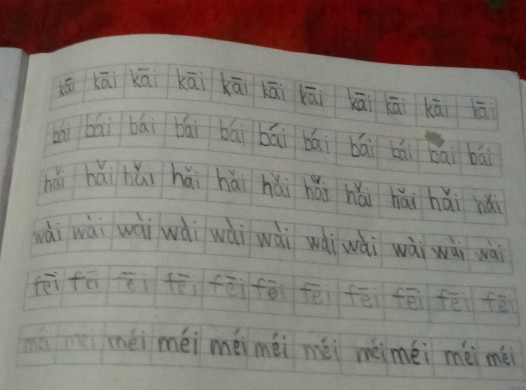 kāi kāi kāi kāi kāi kāi kāi kāi kāi kāi kāi
bái bái bái bái bái bái bái bái bái bái bái
hǎi hǎi hǎi hǎi hǎi hǎi hǎi hǎi hǎi hǎi hǎi
wài wài wài wài wài wài wài wài wài wài wài
fēi fēi fēi fēi fēi fēi fēi fēi fēi fēi fēi
méi méi méi méi méi méi méi méi méi méi méi